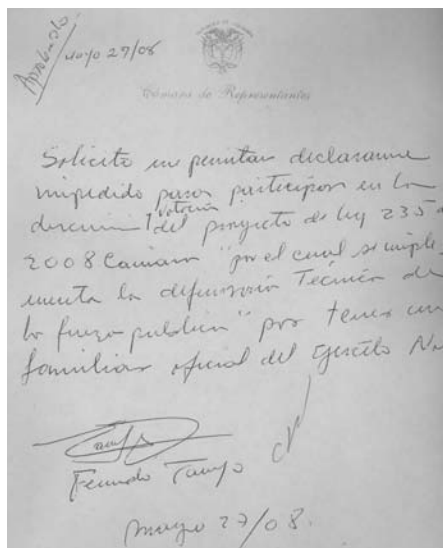 Aprobado
mayo 27/08
Cámara de Representantes
Solicito me permitan declararme
impedido para participar en la
discusión y votación del proyecto de ley 235 
2008 Camara "por el cual se imple-
menta la defensoría Técnica de
la fuerza publica" por tener un
familiar oficial del Ejercito
Fernando Tamayo
mayo 27/08.